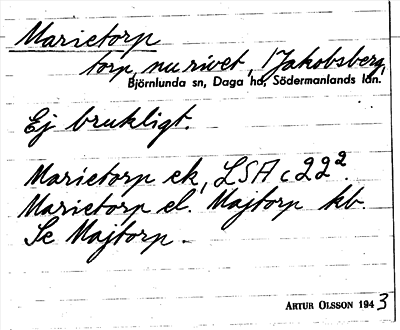 Marietorp
torp, nu rivet, Jakobsberg,
Björnlunda sn, Daga hd, Södermanlands län.
Ej brukligt.
Marietorp ek, LSA c 22².
Marietorp el. Majtorp kb.
Se Majtorp.
ARTUR OLSSON 1943